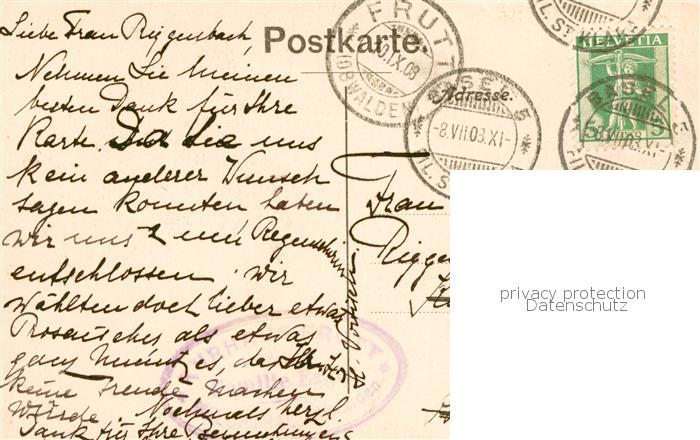 Liebe Frau Riggenbach,
Postkarte.
Nehmen Sie meinen
besten Dank für Ihre
Karte. Da Sie uns
kein anderer Wunsch
sagen konnten haben
wir uns z einen Regenschirm
entschlossen. Wir
wählten doch lieber etwas
Prosaisches als etwas
ganz Unnützes, das Ihnen
keine Freude machen
würde. Nochmals herzl.
Dank für Ihre Bemühungen
Adresse.
Frau
FRUTT
(OBWALDEN)
IX.08
BASEL 5
-8.VIII.08.XI-
FIL. ST. KLARA
HELVETIA
5 5
BASEL 5
-8.VIII.08.XI-
privacy protection
Datenschutz